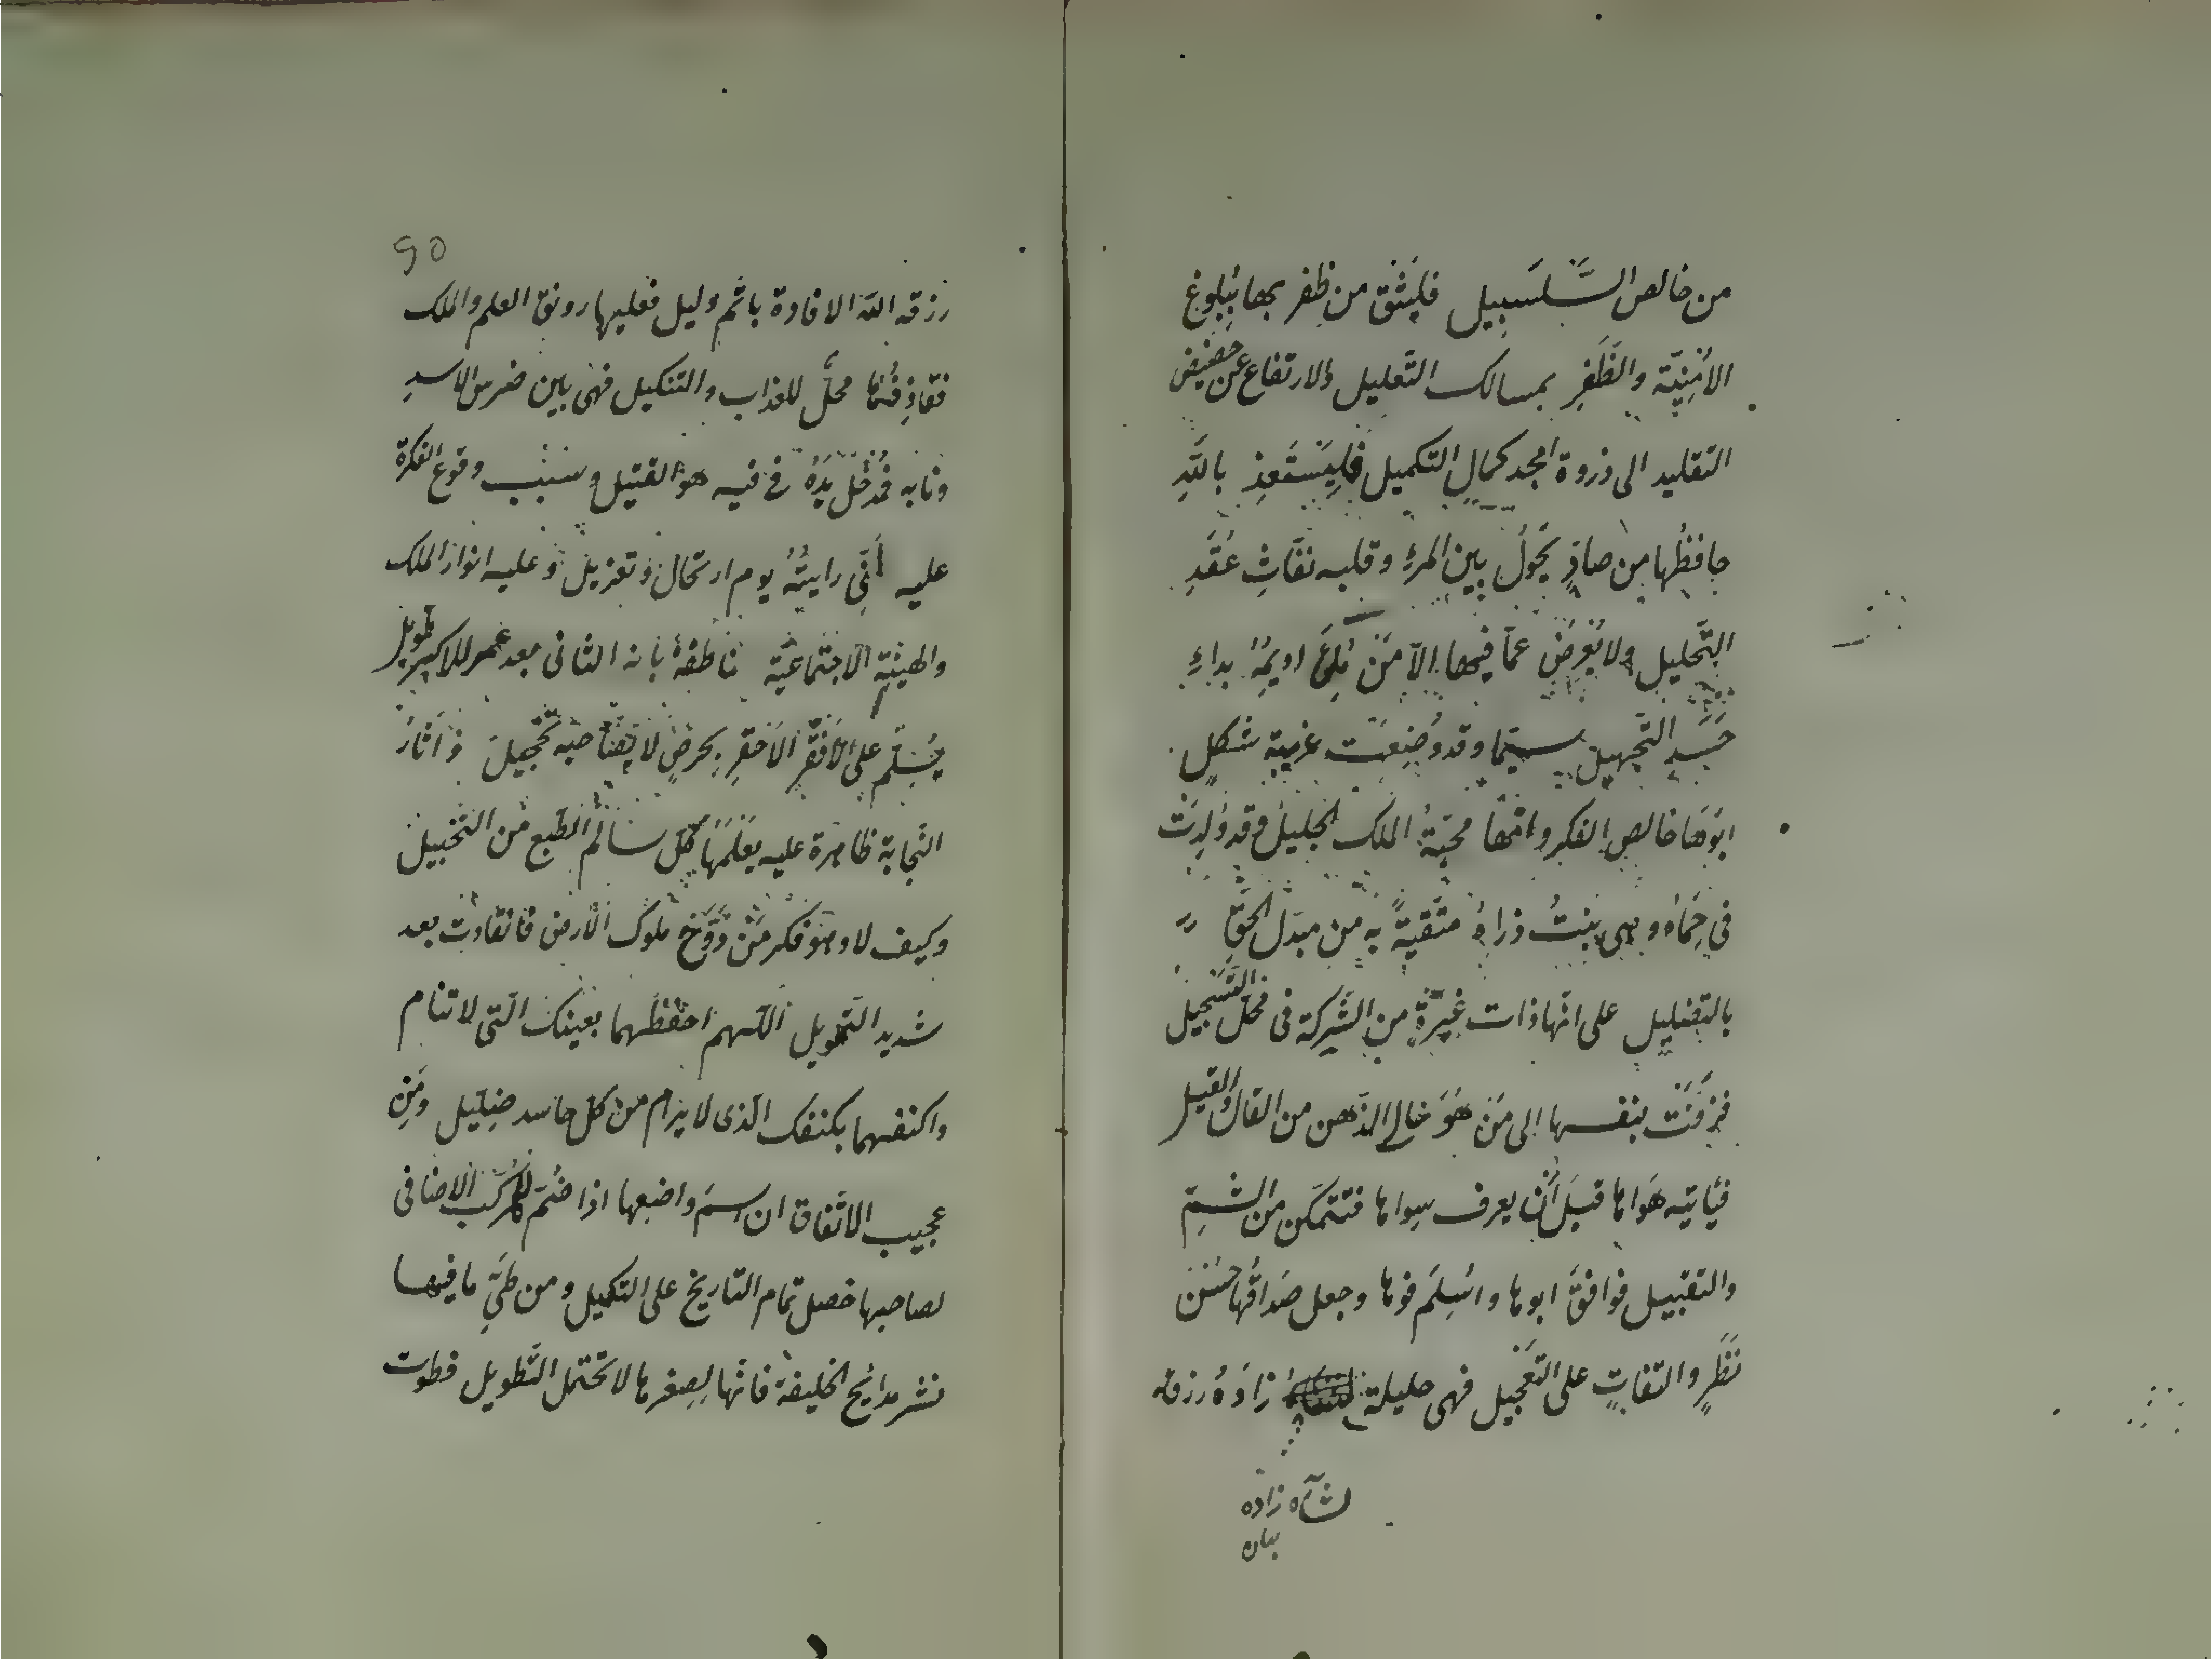 من خالص السَّلسَبيل فليَثق من ظفر بها بُبلوغ
الامْنِيّة والظَفَرِ بمسالك التَّعليل والارتفاع عن حضيض
التقليد الى ذروة امجد كمال التكميل فليَستَعِذ باللّهِ
حافظُها من صادٍ يَحُولُ بين المرءِ وقلبه نفّاثِ عُقَدِ
التَّحليل ولا يُعرِضُ عمّا فيها الّا مَنْ اديمُهُ بداءِ
حَسَدِ التجهيل سيّما وقد وُضِعَت غريبة شكلٍ
ابوَها خالص الفكر وامّها محبّةُ الملك الجليل وقد وُلِدَتْ
في حِمَاهُ وهي بنتُ ذراهُ متّقيةً به من مبدّل الحقّ
بالتضليل على انّها ذات غَيرةٍ من الشّركة فى محلّ التَّسجيل
فزفَّتْ بنفسها الى مَنْ هُوَ خالى الذّهن من القال والقيل
فيأتيه هَواها قبلَ أن يعرف سِواها فتتمكّن من الشمّ
والتقبيل فوافقَ ابوها واسْلِمَ فوها وجعل صَداقُها حُسْنَ
نَظَرٍ والتفاتٍ على التعجيل فهى حليلة زادَهُ رزقه
شآه زاده
بيان
90
رزقه اللّه الافادة باتمّ دليل فعليها رونق العلم والملك
فقاذِفُها محلّ للعذاب والتنكيل فهى بين ضرس الاسدِ
ونابه فمُدخل يَدَهُ فى فيه هو القتيل وسبب وقوع الفكرة
عليه أنّى رايتُهُ يوم ارتحال وتعزيل وعليه انوار الملك
والهيئة الاجتماعيّة ناطقة بانه الثانى بعد عمر للاكبر طويل
يُسَلّم على الافقر الاحقر وآثارُ
النّجابة ظاهرة عليه يعلمُها كلّ سالم الطبع من التخبيل
وكيف لا وهو فكر مَنْ دَوَّخ ملوك الأرض فانقادت بعد
شديد التّهويل اللّهم احفظهما بعينك الّتى لا تنام
واكنفهما بكنفك الّذى لا يرام من كلّ حاسد ضِلّيل ومَن
عجيب الاتّفاق ان اسمَ واضعها اذا ضُمّ للمركّب الاضافى
لصاحبها حصل تمام التاريخ على التكميل ومن طىّ ما فيها
نشر مدائح الخليفة فانّها لِصِغرها لا تحتمل التّطويل فطوت